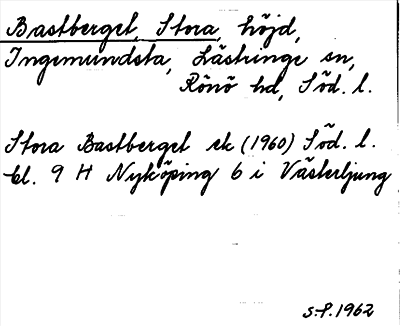 Bastberget, Stora, höjd,
Ingemundsta, Lästringe sn,
Rönö hd, Söd. l.
Stora Bastberget ek (1960) Söd. l.
bl. 9 H Nyköping 6 i Västerljung
S.F. 1962